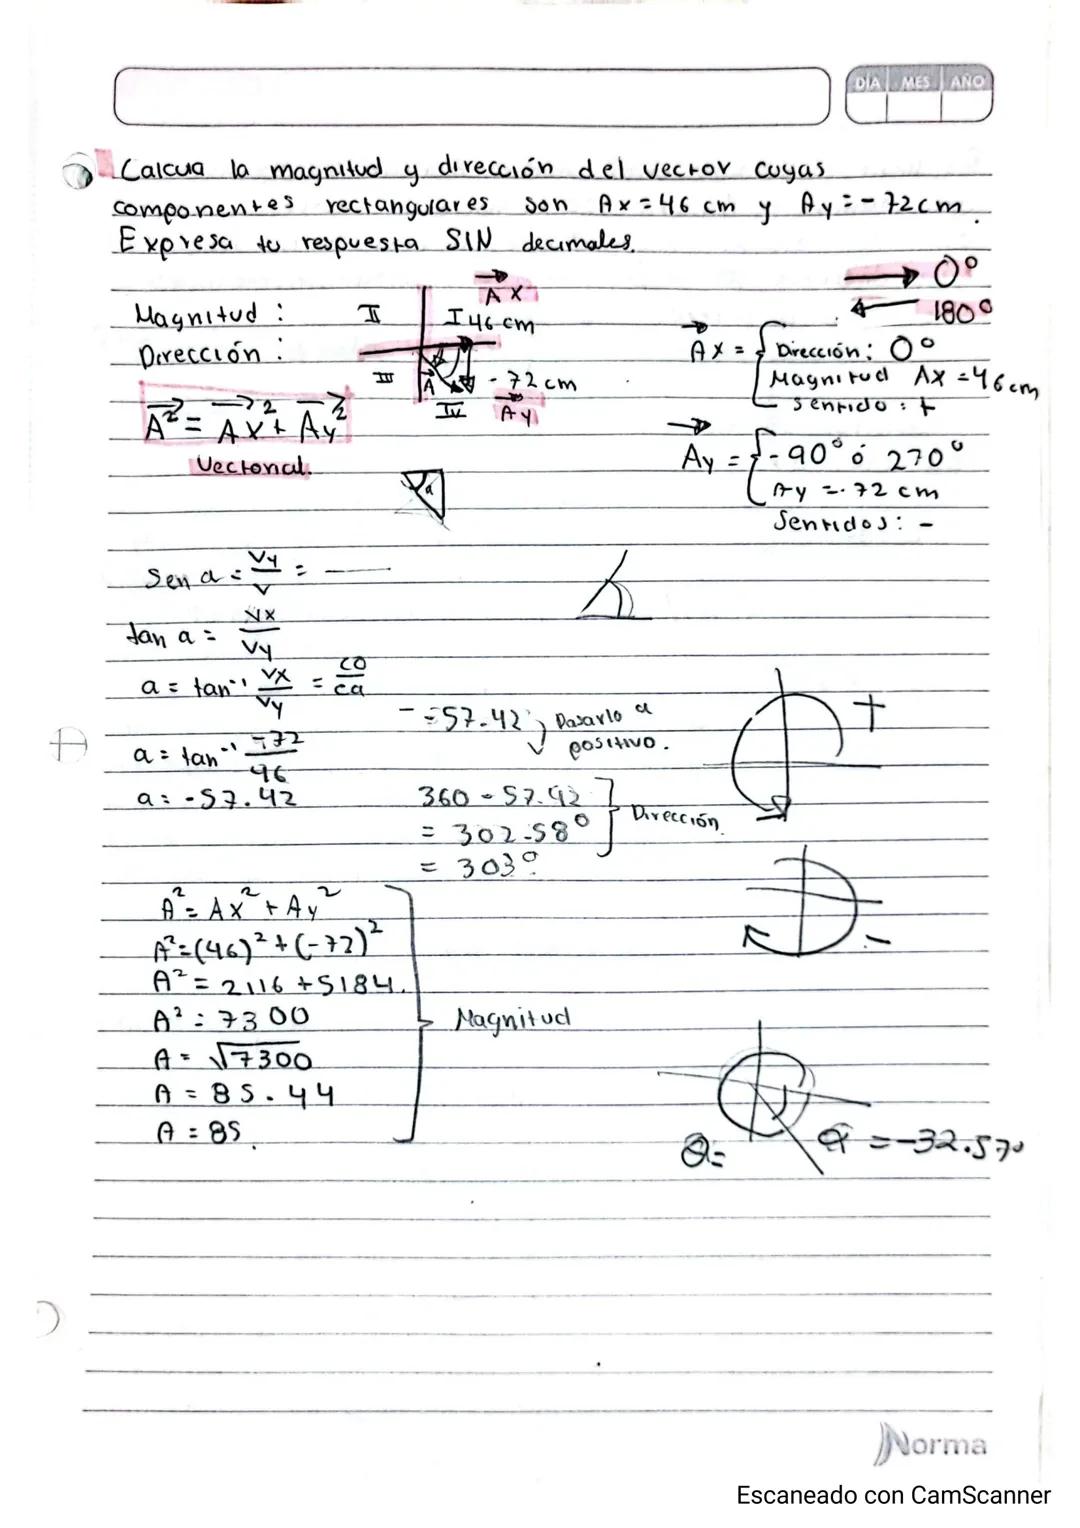 DÍA MES AÑO
Calcua la magnitud y dirección del vector cuyas
componentes rectangulares son Ax = 46 cm y Ay = - 72cm.
Expresa tu respuesta SIN decimales.
0°
180°
Magnitud :
Dirección :
II
I
III
IV
A X
46 cm
A
- 72 cm
Ay
A² = Ax² + Ay²
Vectorial.
a
AX = { Dirección: 0°
Magnitud AX = 46 cm
Sentido : +
Ay = { - 90° ó 270°
Ay = - 72 cm
Sentidos : -
Sen a = Vy/V = —
tan a = Vx/Vy
a = tan⁻¹ Vx/Vy = CO/ca
a = tan⁻¹ -72/46
a = -57.42
- = 57.42 Pasarlo a
positivo.
360 - 57.42
= 302.58°
= 303°
Dirección
+
-
A² = Ax² + Ay²
A² = (46)² + (-72)²
A² = 2116 + 5184.
A² = 7300
A = √7300
A = 85.44
A = 85.
Magnitud
θ =
= -32.57°
Norma
Escaneado con CamScanner